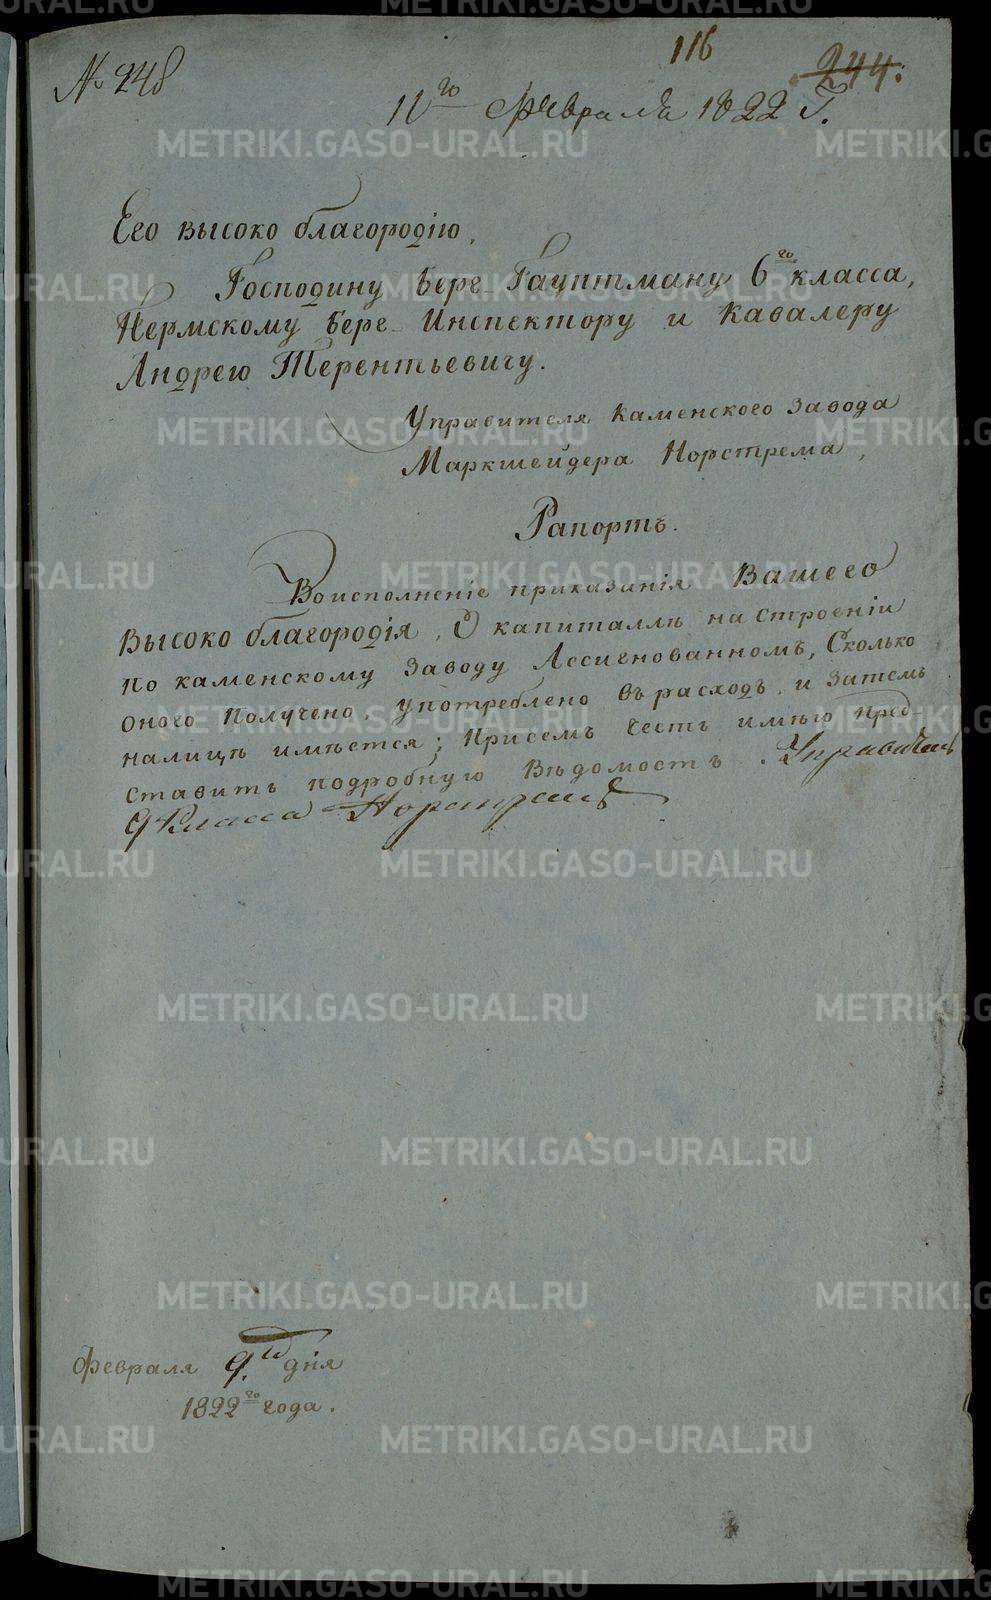 № 248
116
244.
11го февраля 1822 г.
Его высоко благородію,
Господину Берг Гауптману 6го класса,
Пермскому Берг Инспектору и Кавалеру
Андрею Терентьевичу.
Управителя Каменского завода
Маркшейдера Норстрема,
Рапортъ.
Воисполненіе приказанія Вашего
Высоко благородія, О капиталлѣ на строеніи
по каменскому заводу Ассигнованномъ, Сколько
оного получено, употреблено въ расходъ, и затемъ
налицѣ имѣется; Присемъ честь имѣю пред-
ставить подробную Вѣдомость. Управитель
9 Класса Норстремъ
Февраля 9го дня
1822го года.
METRIKI.GASO-URAL.RU